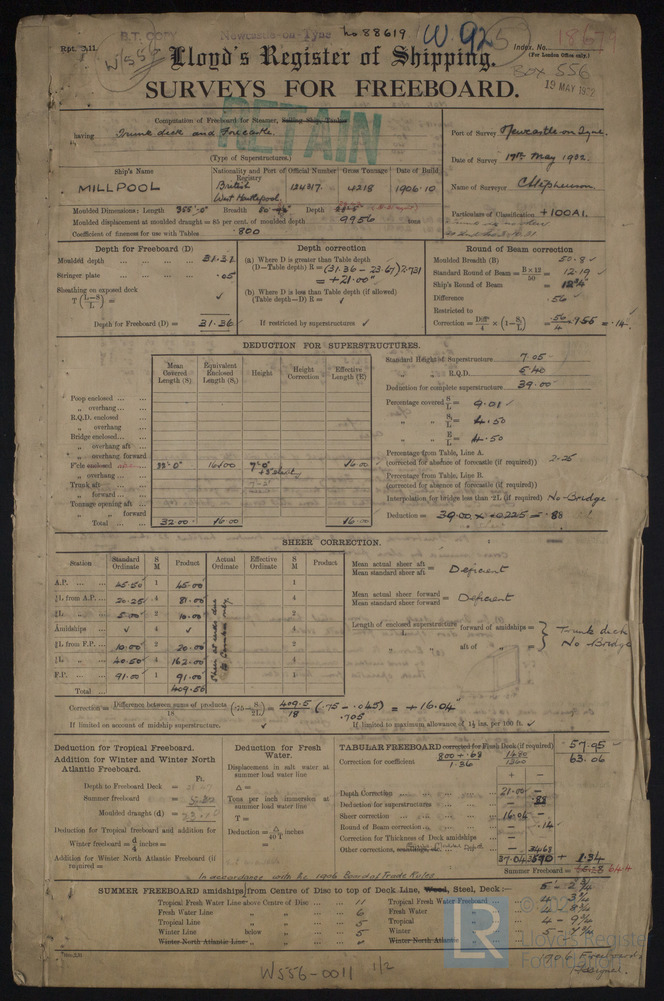 Rpt. 11.
B.T. COPY
Newcastle-on-Tyne
No 88619
W. 92
W556
Index. No.
(For London Office only.)
Box 556
19 MAY 1932
Lloyd's Register of Shipping.
SURVEYS FOR FREEBOARD.
RETAIN
Computation of Freeboard for Steamer, Sailing Ship, Tanker
having Trunk deck and Forecastle.
(Type of Superstructures.)
Port of Survey Newcastle on Tyne.
Date of Survey 17th May 1932.
Name of Surveyor C Stephenson
Particulars of Classification +100A1.
Ship's Name
Nationality and Port of Registry
Official Number
Gross Tonnage
Date of Build
MILLPOOL
British
West Hartlepool
124317
4218
1906-10
Moulded Dimensions: Length 355'-0" Breadth Depth
Moulded displacement at moulded draught = 85 per cent. of moulded depth 9956 tons
Coefficient of fineness for use with Tables .800
Depth for Freeboard (D)
Moulded depth 31.31
Stringer plate .05
Sheathing on exposed deck
T (L-S / L) =
Depth for Freeboard (D) = 31.36
Depth correction
(a) Where D is greater than Table depth
(D—Table depth) R = (31.36 - 23.67) 2.731
= +21.00"
(b) Where D is less than Table depth (if allowed)
(Table depth—D) R = ✓
If restricted by superstructures ✓
Round of Beam correction
Moulded Breadth (B) 50.8 ✓
Standard Round of Beam = B×12/50 = 12.19 ✓
Ship's Round of Beam =
Difference .56
Restricted to
Correction = Diff/4 × (1 - S₁/L) = .56/4 × .955 = .14
DEDUCTION FOR SUPERSTRUCTURES.
Mean Covered Length (S)
Equivalent Enclosed Length (S₁)
Height
Height Correction
Effective Length (E)
Poop enclosed
„ overhang
R.Q.D. enclosed
„ overhang
Bridge enclosed
„ overhang aft
„ overhang forward
F'cle enclosed 32'-0" 16.00 7'-0" 16.00
„ overhang
Trunk aft
„ forward
Tonnage opening aft
„ „ forward
Total 32.00 16.00 16.00
Standard Height of Superstructure 7.05
„ „ R.Q.D. 5.40
Deduction for complete superstructure 39.00
Percentage covered S/L = 9.01 ✓
„ „ S₁/L = 4.50
„ „ E/L = 4.50
Percentage from Table, Line A.
(corrected for absence of forecastle (if required)) 2.25
Percentage from Table, Line B.
(corrected for absence of forecastle (if required))
Interpolation for bridge less than ·2L (if required) No-Bridge
Deduction = 39.00 × .0225 = .88
SHEER CORRECTION.
Station
Standard Ordinate
S M
Product
Actual Ordinate
Effective Ordinate
S M
Product
A.P. 45.50 1 45.00 1
⅙L from A.P. 20.25 4 81.00 4
⅓L „ 5.00 2 10.00 2
Amidships ✓ 4 ✓ 4
⅓L from F.P. 10.00 2 20.00 2
⅙L „ 40.50 4 162.00 4
F.P. 91.00 1 91.00 1
Total 409.50
Mean actual sheer aft / Mean standard sheer aft = Deficient
Mean actual sheer forward / Mean standard sheer forward = Deficient
Length of enclosed superstructure forward of amidships =
„ „ aft of „ =
Trunk deck
No Bridge
Correction = Difference between sums of products / 18 (·75 - S/2L) = 409.5/18 (.75 - .045) = +16.04"
.705
If limited on account of midship superstructure. ✓
If limited to maximum allowance of 1½ ins. per 100 ft. ✓
Deduction for Tropical Freeboard.
Addition for Winter and Winter North Atlantic Freeboard.
Ft.
Depth to Freeboard Deck =
Summer freeboard =
Moulded draught (d) =
Deduction for Tropical freeboard and addition for
Winter freeboard = d/4 inches =
Addition for Winter North Atlantic Freeboard (if required) =
Deduction for Fresh Water.
Displacement in salt water at summer load water line
Δ =
Tons per inch immersion at summer load water line
T =
Deduction = Δ/40T inches
=
TABULAR FREEBOARD corrected for Flush Deck (if required) 57.95
Correction for coefficient .800 + .68 / 1.36 63.06
+ -
Depth Correction 21.00 -
Deduction for superstructures - .88
Sheer correction 16.04 -
Round of Beam correction - .14
Correction for Thickness of Deck amidships - -
Other corrections,
37.04
+ 1.34
Summer Freeboard = 64.4
In accordance with the 1906 Board of Trade Rules
SUMMER FREEBOARD amidships from Centre of Disc to top of Deck Line, Wood, Steel, Deck:—
5-2¾
Tropical Fresh Water Line above Centre of Disc 11
Fresh Water Line „ 6
Tropical Line „ 5
Winter Line below 5
Winter North Atlantic Line „
Tropical Fresh Water Freeboard 4-3¾
Fresh Water „ 4-8¾
Tropical „ 4-9¾
Winter „ 5-7¾
Winter North Atlantic „
1906 Freeboards
assigned.
LR
Lloyd's Register
Foundation
W556-0011 1/2